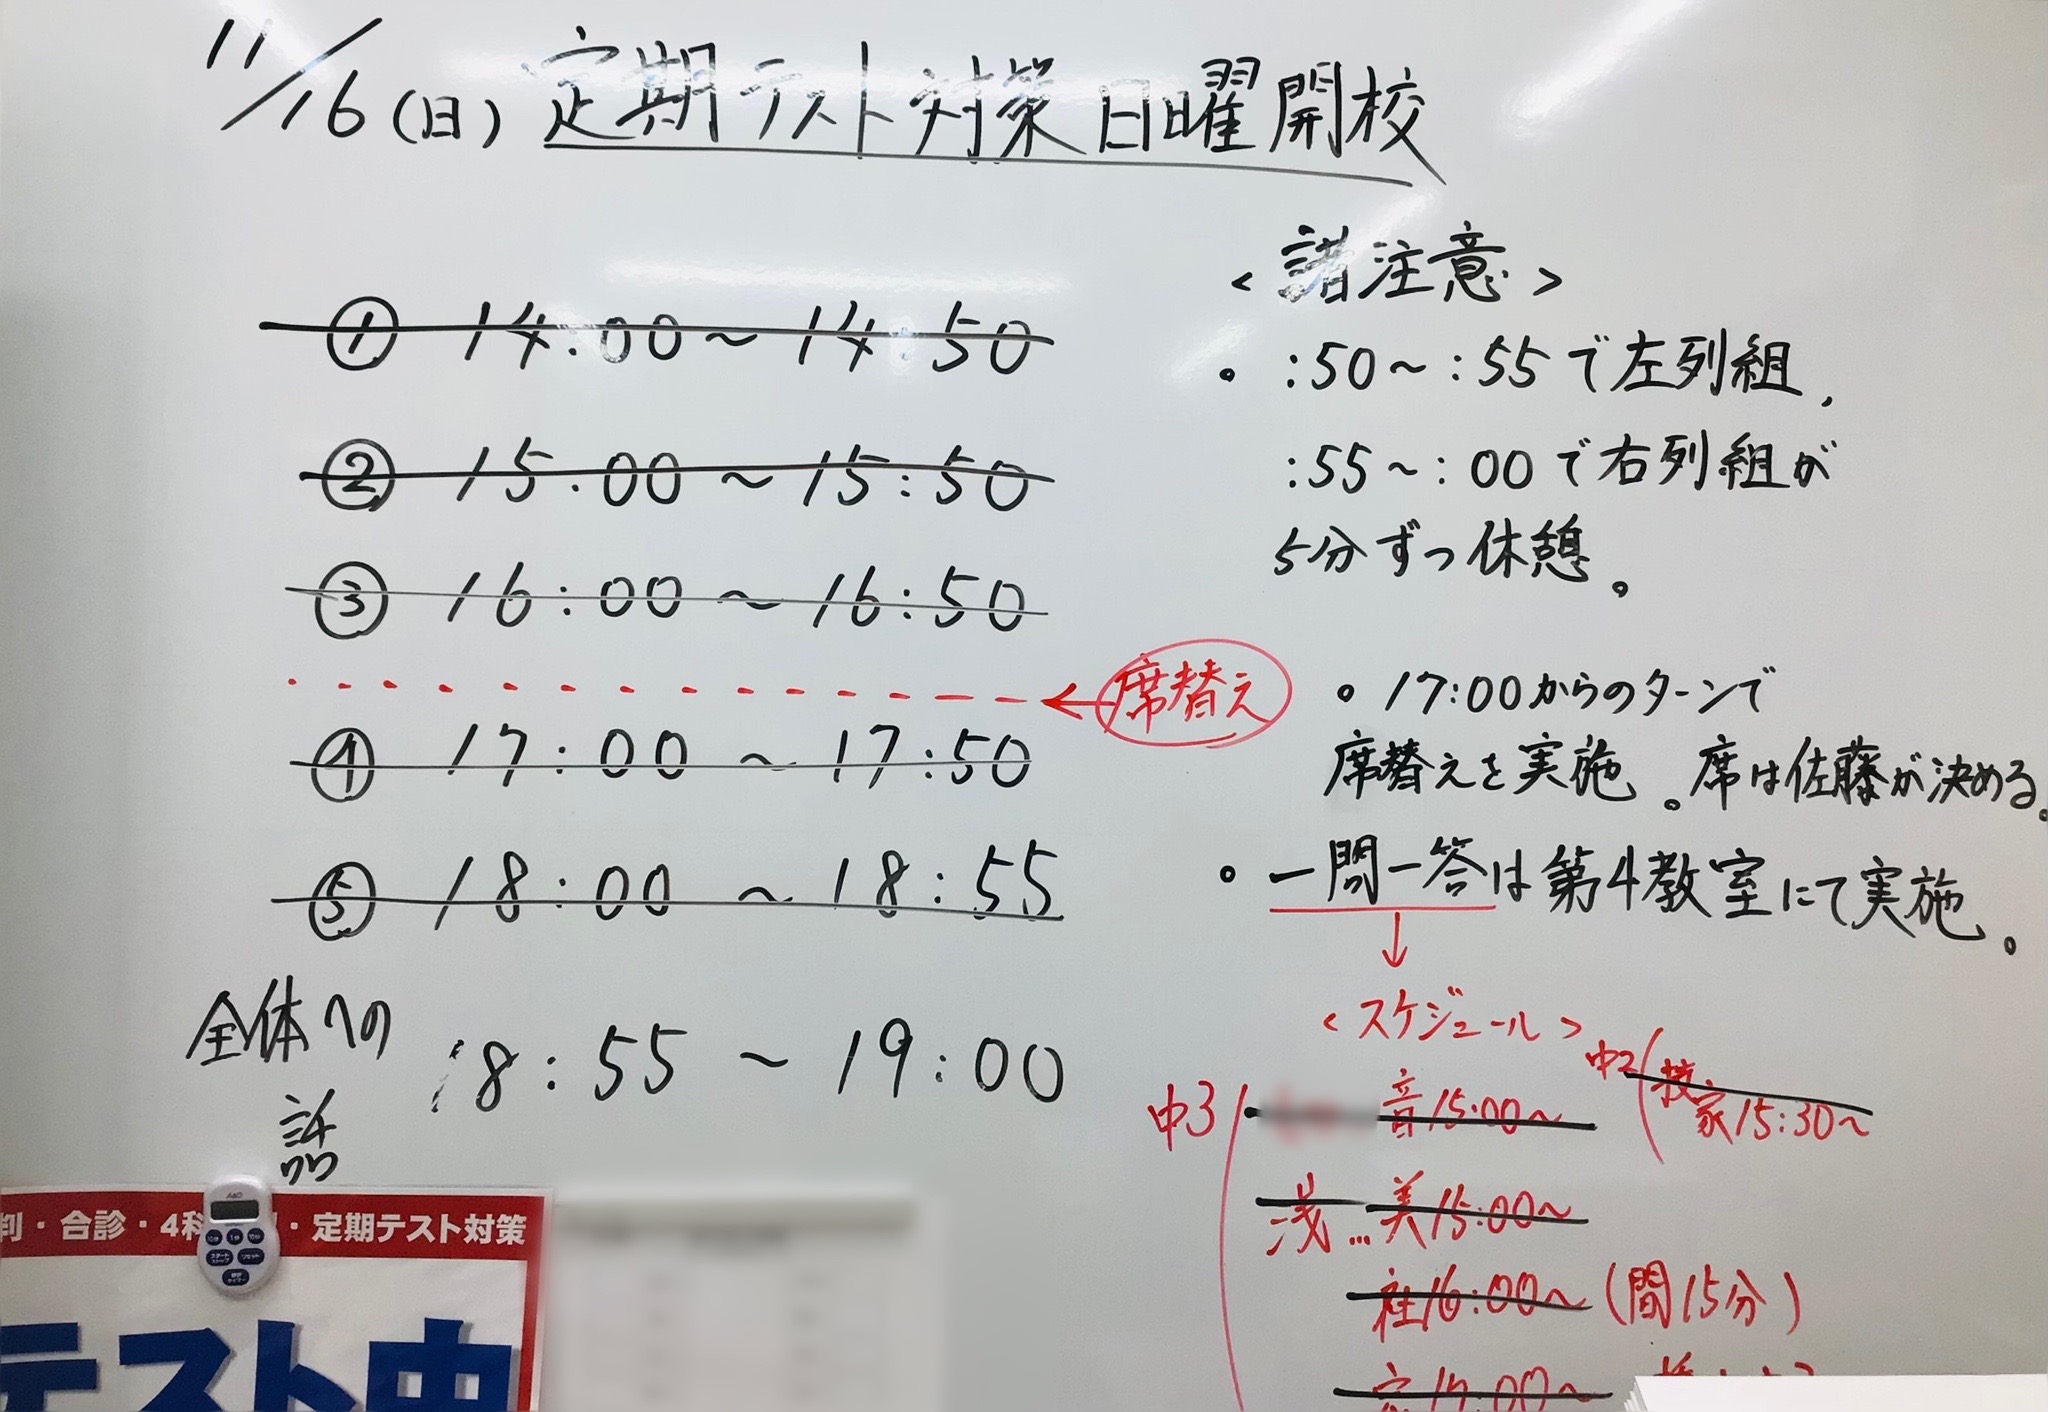 11/16(日) 定期テスト対策日曜開校
① 14:00~14:50
② 15:00~15:50
③ 16:00~16:50
席替え
④ 17:00~17:50
⑤ 18:00~18:55
全体への
話
18:55~19:00
<諸注意>
。:50~:55で左列組,
:55~:00で右列組が
5分ずつ休憩。
。17:00からのターンで
席替えを実施。席は佐藤が決める。
。一問一答は第4教室にて実施。
↓
<スケジュール>
中3
音15:00~
中2
技、
家15:30~
浅…美15:00~
社16:00~(間15分)
17:00~
判・合診・4科
・定期テスト対策
テスト中